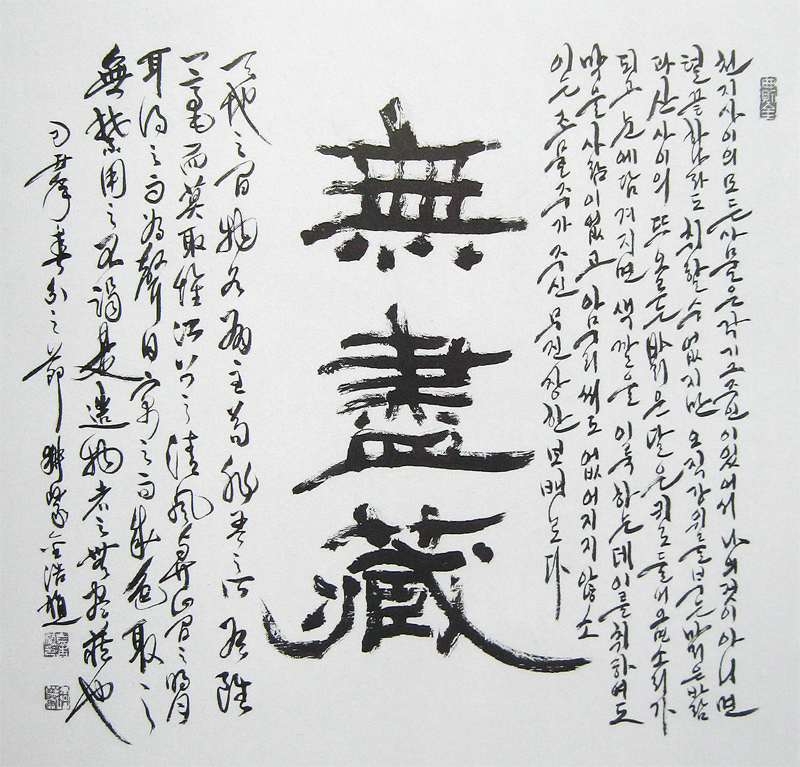 천지사이의 모든 사물은 각기 그 주인이 있어서 나의 것이 아니면
털끝 하나라도 취할 수 없지만 오직 강 위를 부는 맑은 바람
과 산 사이의 밝은 달은 귀로 들어오면 소리가
되고 눈에 담겨지면 색깔을 이룩하는데 이를 취하여도
막을 사람이 없고 아무리 써도 없어지지 않소
이는 조물주가 주신 무진장한 보배로다
無盡藏
天地之間物各有主苟非吾之所有雖
一毫而莫取惟江上之清風與山間之明月
耳得之而為聲目寓之而成色取之
無禁用之不竭是造物者之無盡藏也
春分之節 金浩